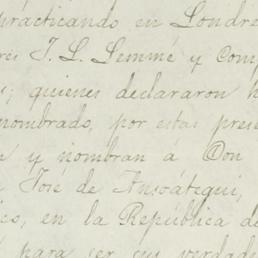 practicando en Londre
res J. L. Lemmé y Com
quienes declararon h
nombrado, por estas pres
y nombran á Don
José de Ansoátegui,
en la República de
para ser su verdade